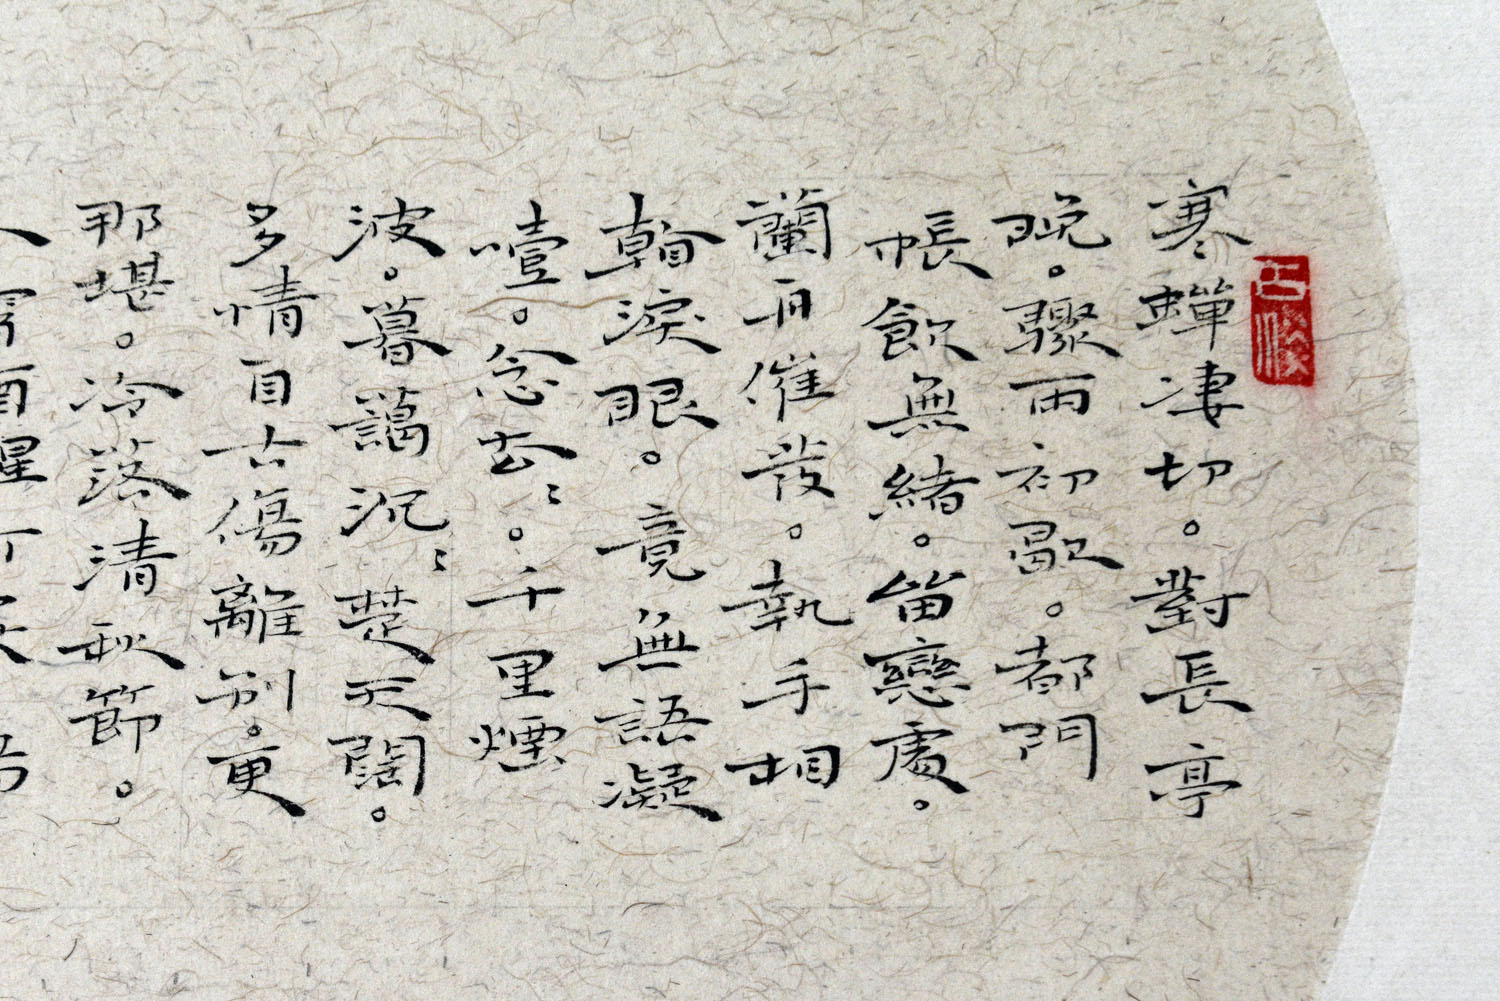 寒蟬凄切。對長亭
晚。驟雨初歇。都門
帳飲無緒。留戀處。
讕舟催發。執手相
看淚眼。竟無語凝
噎。念去〻。千里煙
波。暮藹沉〻楚天闊。
多情自古傷離別。更
那堪。冷落清秋節。